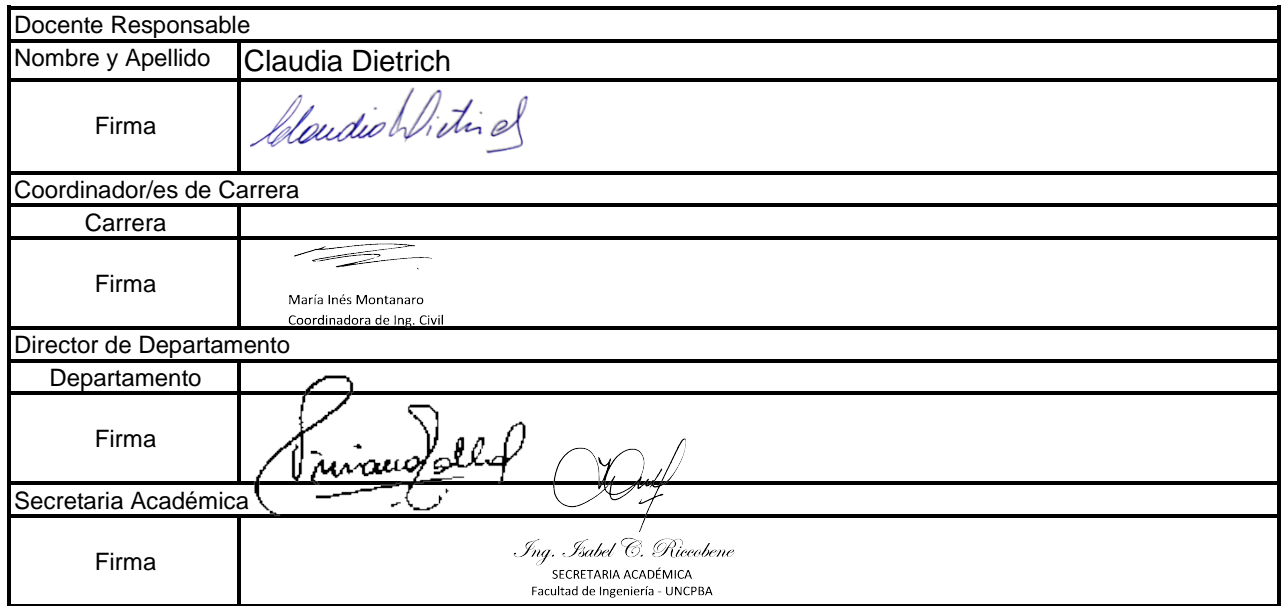 Docente Responsable
Nombre y Apellido Claudia Dietrich
Firma Claudia Dietrich
Coordinador/es de Carrera
Carrera
Firma
María Inés Montanaro
Coordinadora de Ing. Civil
Director de Departamento
Departamento
Firma
Secretaria Académica
Firma
Ing. Isabel C. Riccobene
SECRETARIA ACADÉMICA
Facultad de Ingeniería - UNCPBA